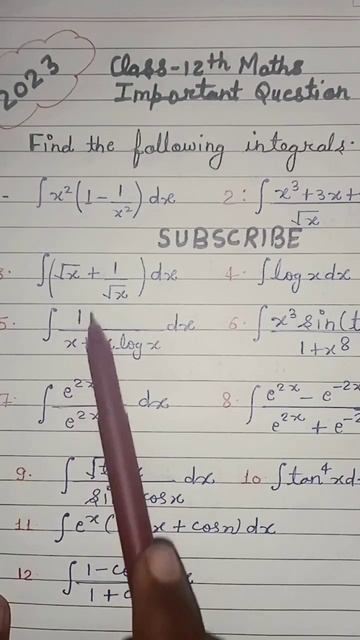 2023
Class-12th Maths
Important Question
Find the following integrals.
∫x²(1-1/x²)dx 2: ∫ x³+3x+ / √x
SUBSCRIBE
3. ∫(√x + 1/√x)dx 4. ∫log x dx
5. ∫ 1 / x+ x log x dx 6. ∫ x³ sin(t / 1+x⁸
7. ∫ e²ˣ / e²ˣ dx 8. ∫ e²ˣ - e⁻²ˣ / e²ˣ + e⁻²
9. ∫ √ x / sin cos x dx 10 ∫tan⁴x d
11 ∫eˣ( x + cosx)dx
12 ∫ 1-co / 1+c x